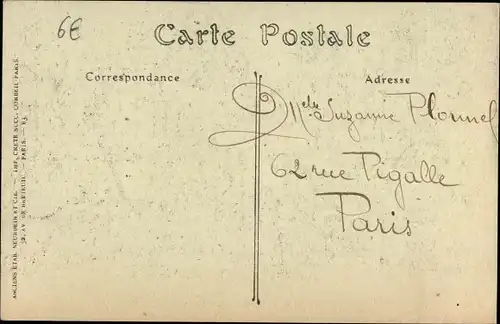 6€
Carte Postale
Correspondance
Adresse
Melle Suzanne Plonnel
62 rue Pigalle
Paris
ANCIENS ETAB. NEURDEIN ET CIE. — IMP. CRETE SUCC. CORBEIL PARIS.
52, AV. DE BRETEUIL. — PARIS.